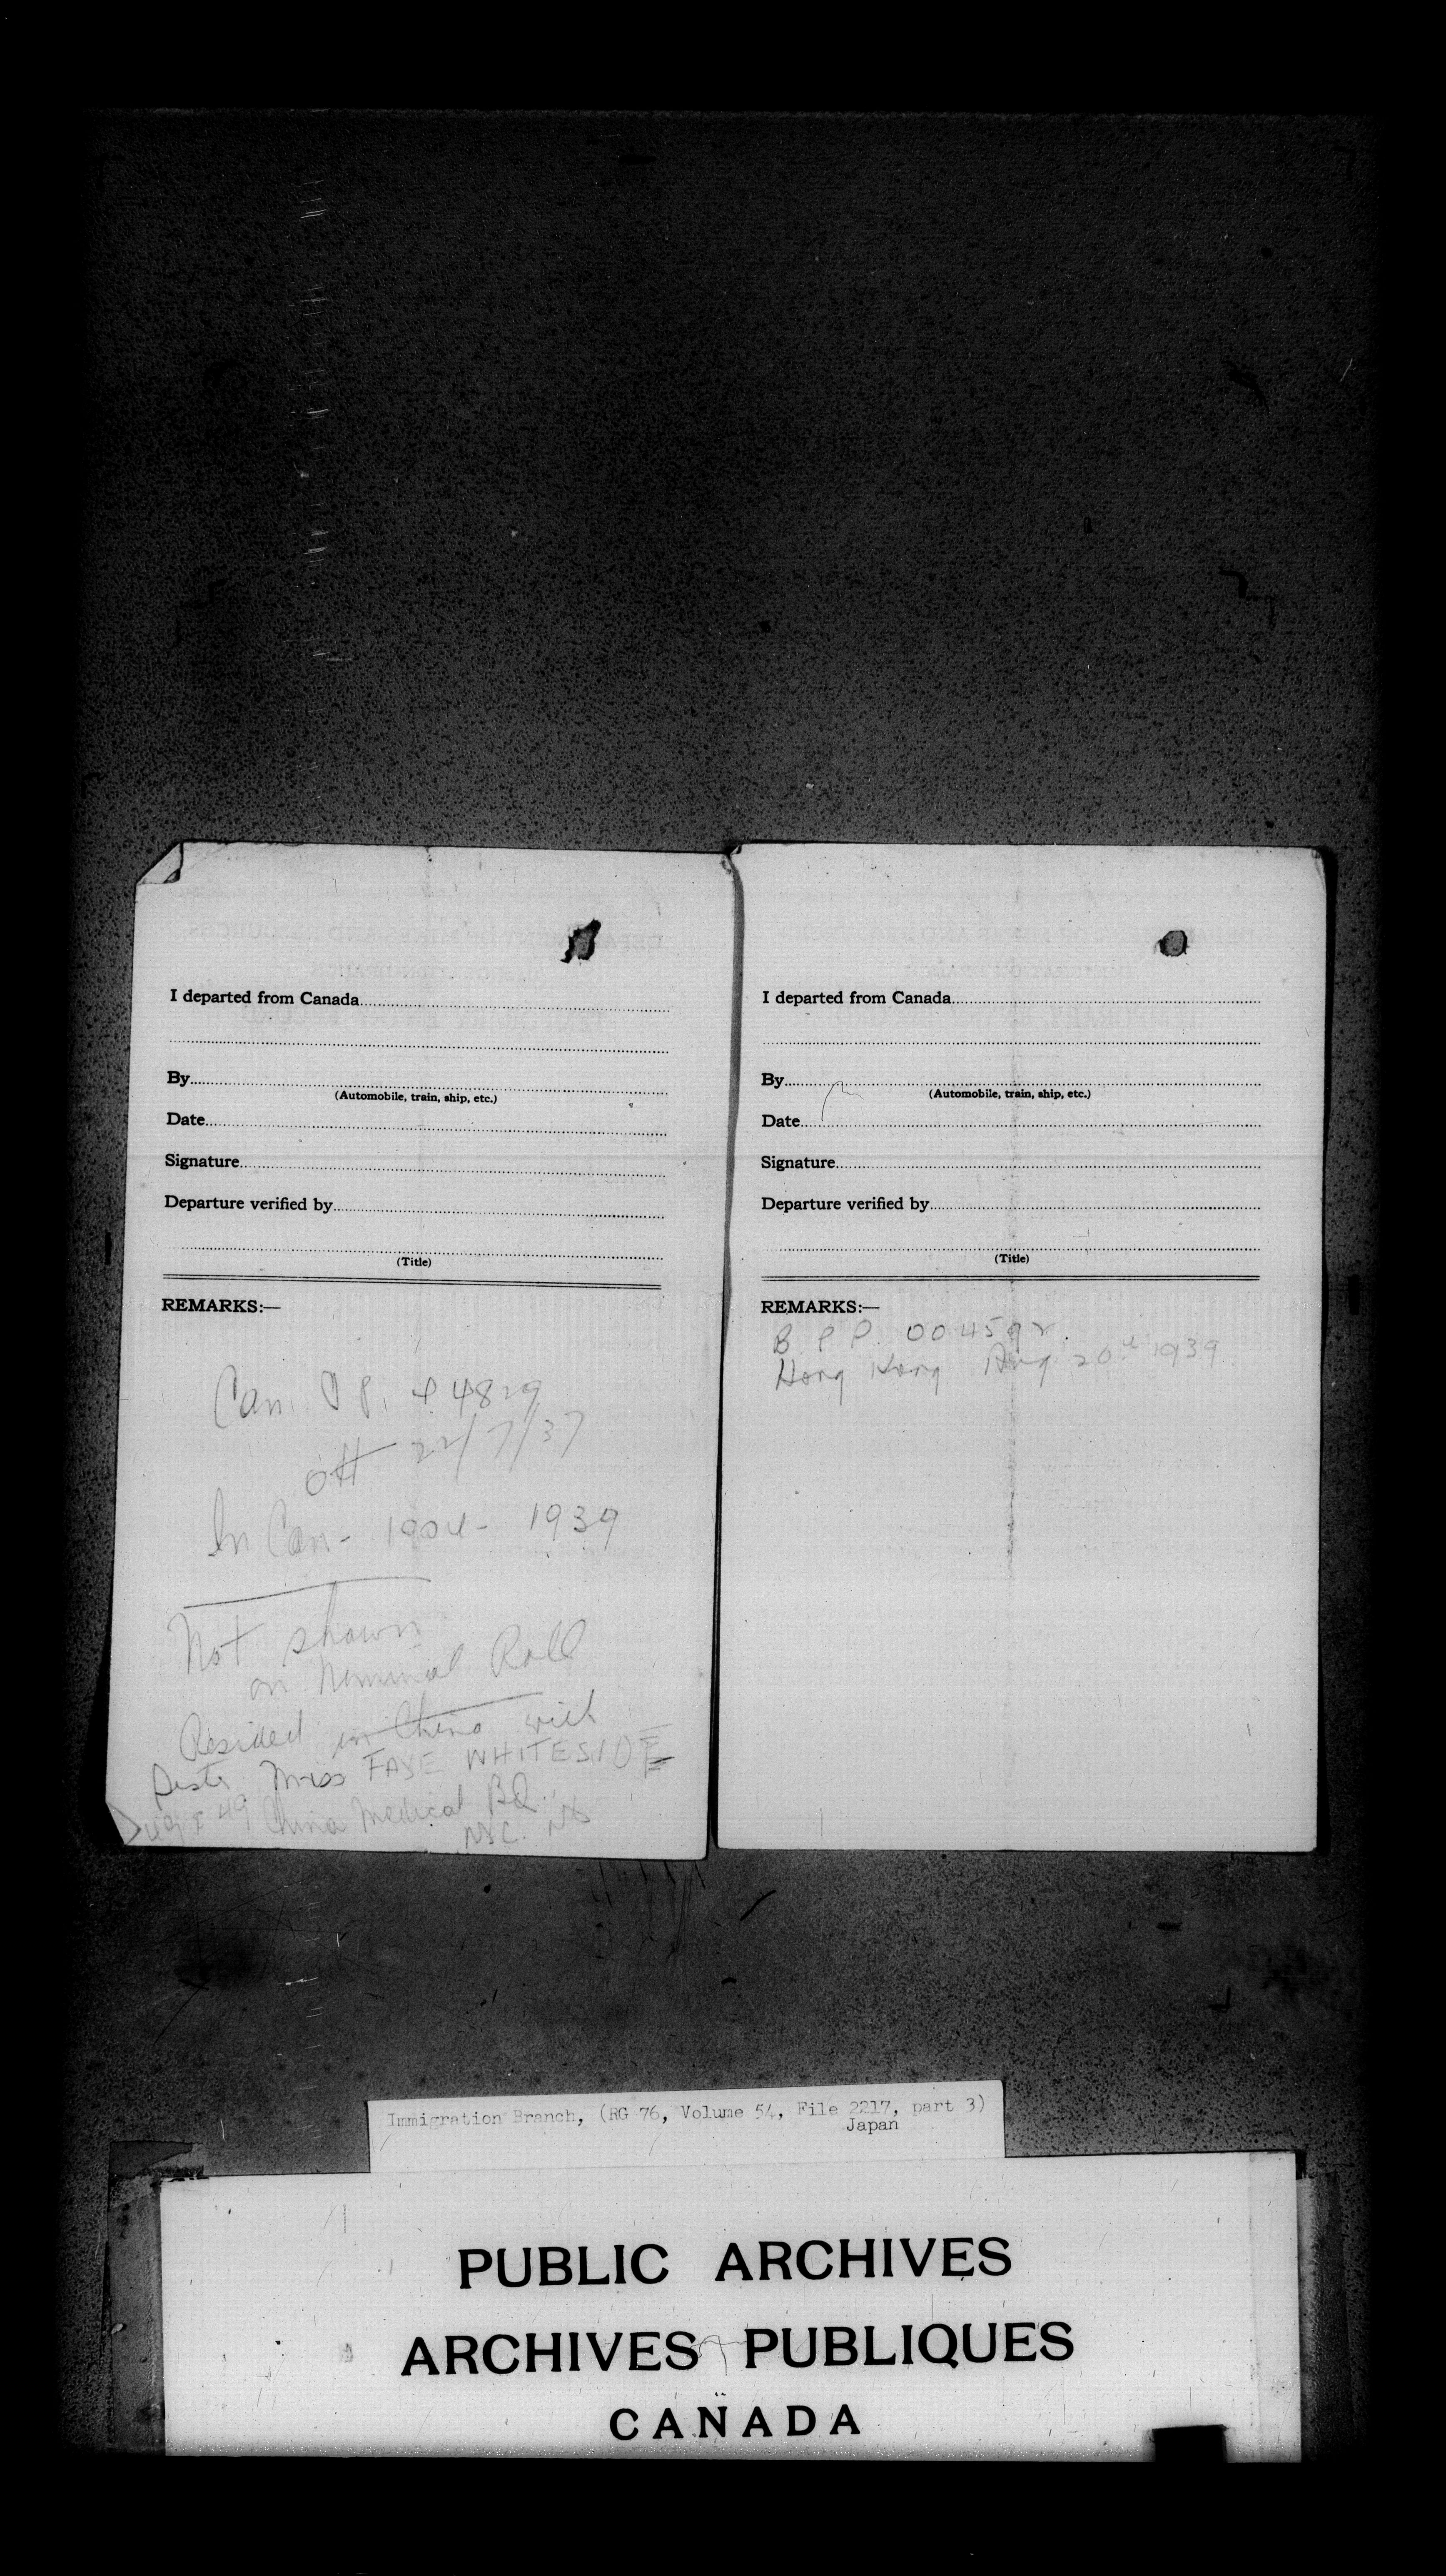 I departed from Canada
By
(Automobile, train, ship, etc.)
Date
Signature
Departure verified by
(Title)
REMARKS:—
Can. P. 44829
Ott 22/7/37
In Can - 1904 - 1939
Not shown
on Nominal Roll
Resided in China with
Miss FAYE WHITESIDE
49 China Medical Bd.
NYC.
I departed from Canada
By
(Automobile, train, ship, etc.)
Date
Signature
Departure verified by
(Title)
REMARKS:—
B. P P. 004592.
Hong Kong Aug 26th 1939
Immigration Branch, (RG 76, Volume 54, File 2217, part 3)
Japan
PUBLIC ARCHIVES
ARCHIVES PUBLIQUES
CANADA